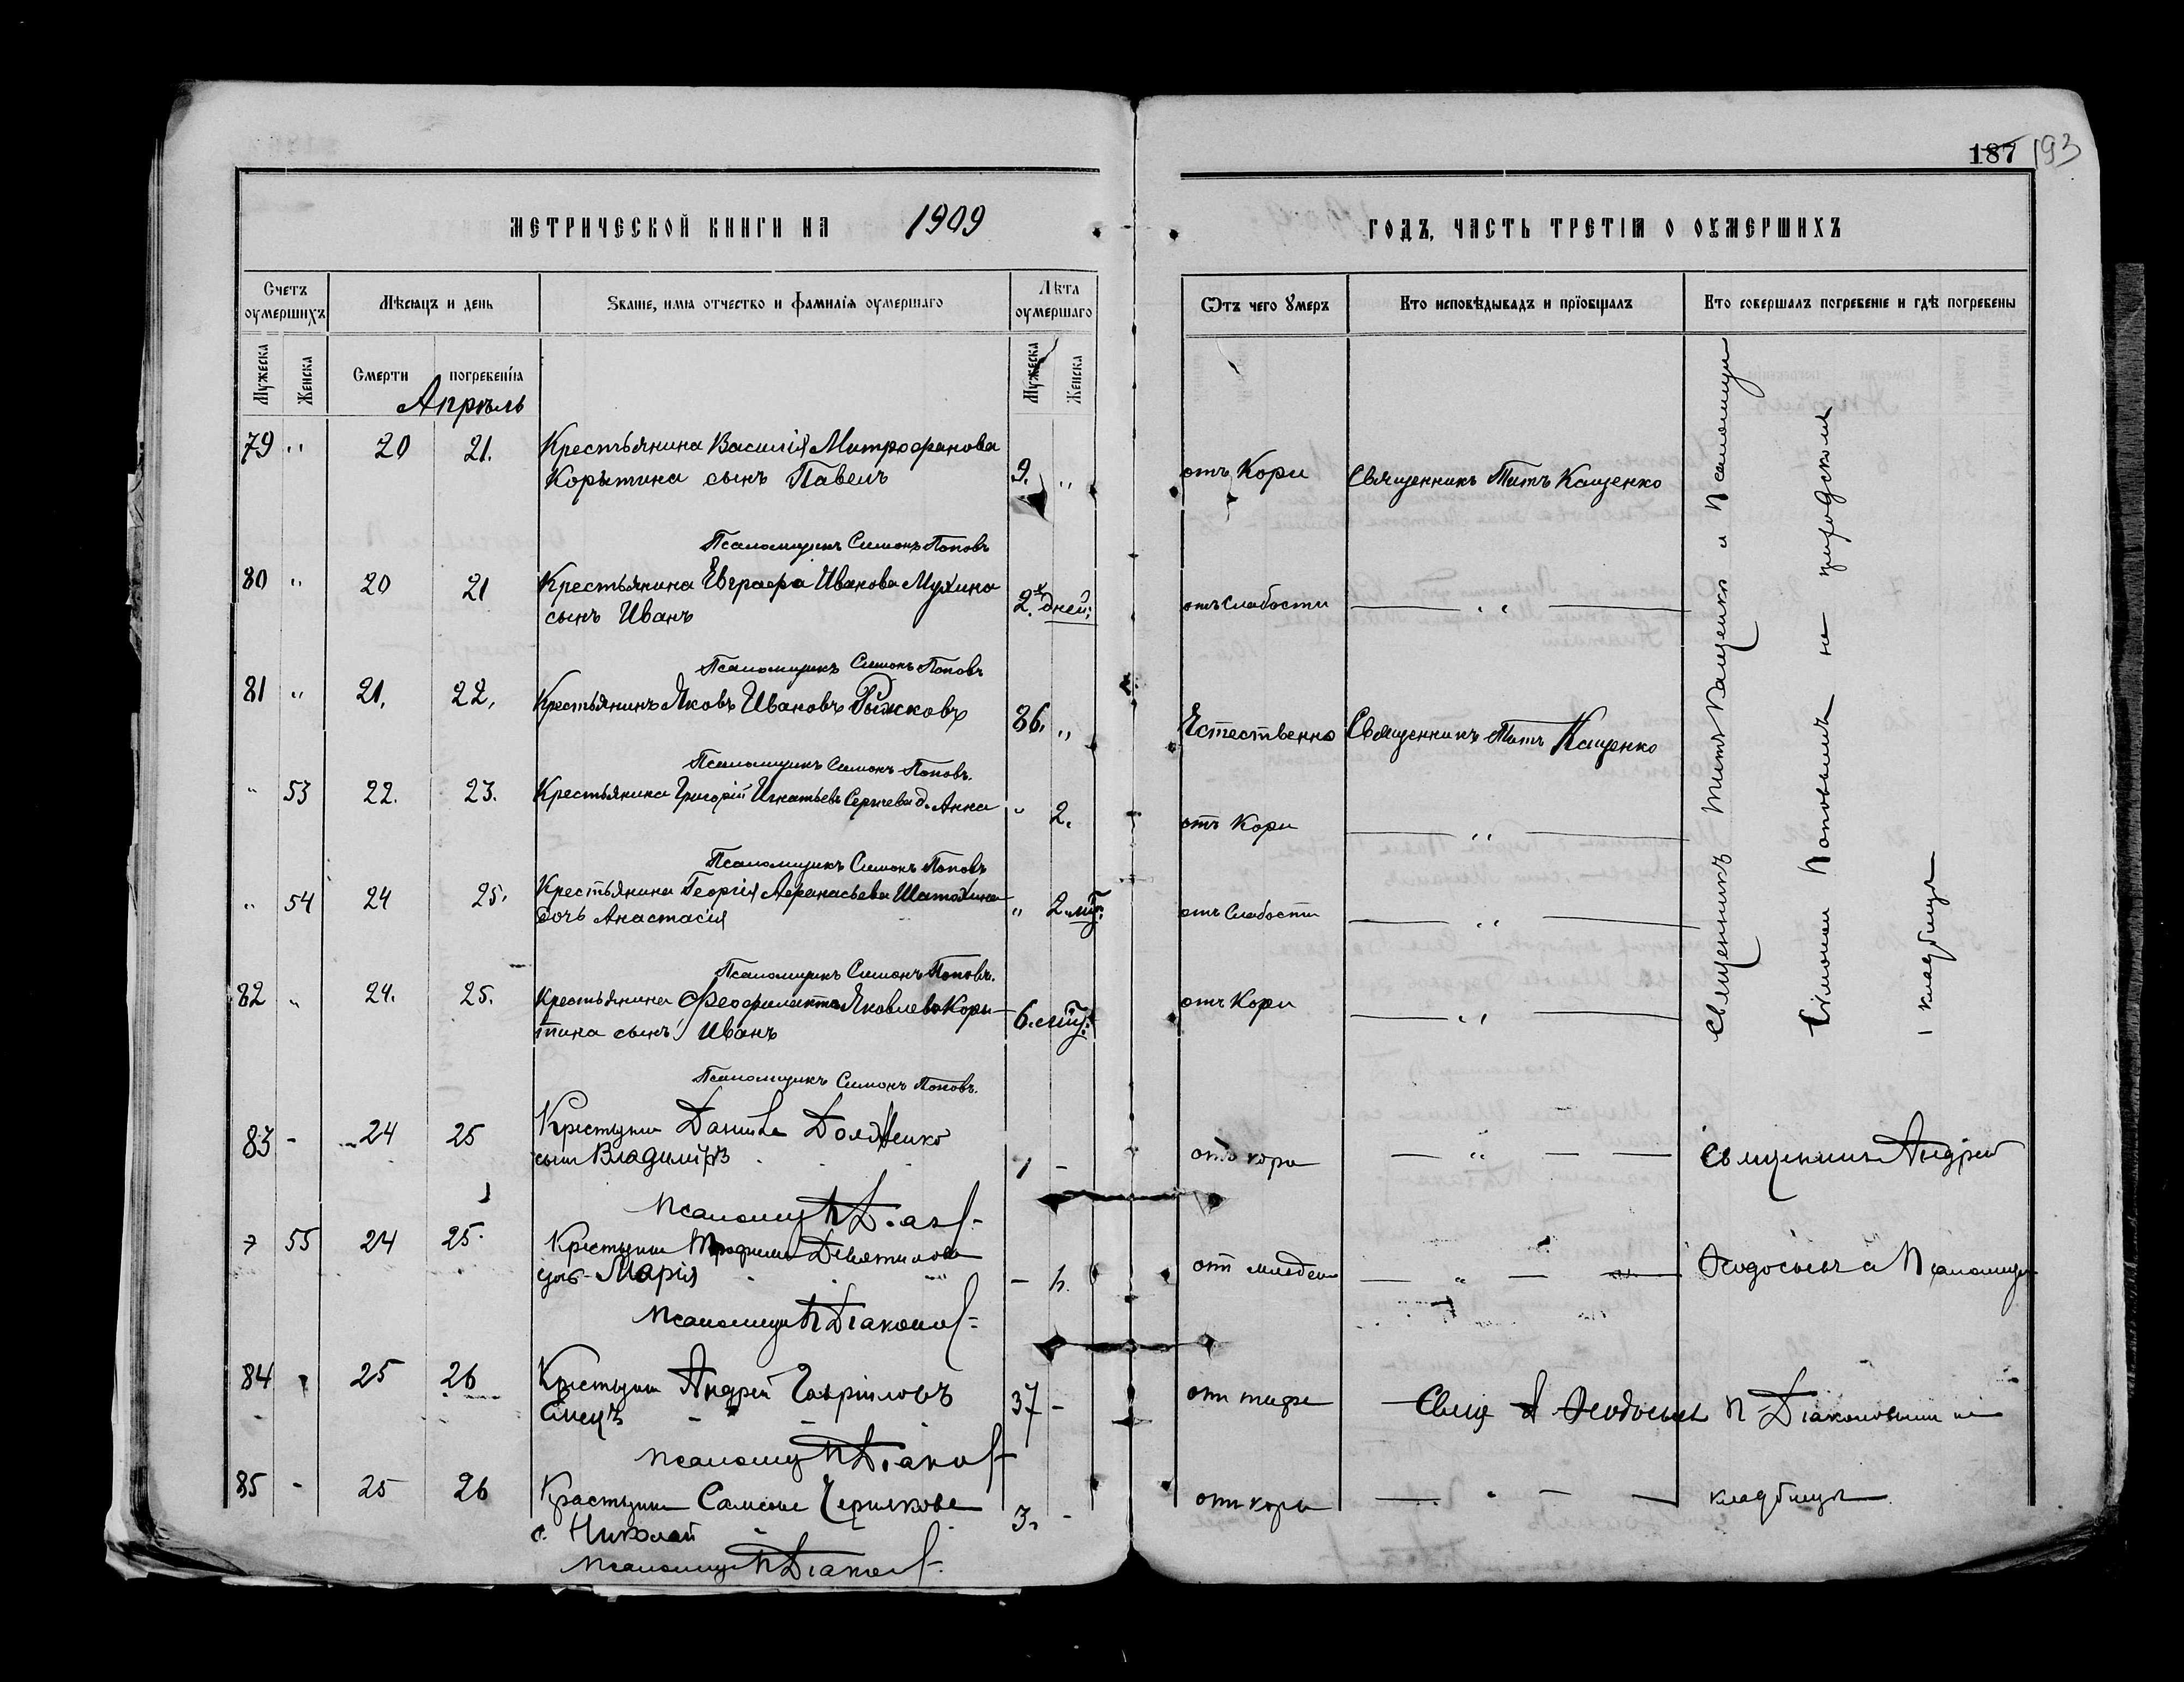 187 193
МЕТРИЧЕСКОЙ КНИГИ НА 1909 ГОДЪ, ЧАСТЬ ТРЕТІЯ О ОУМЕРШИХЪ
Счетъ оумершихъ
Мѣсяцъ и день
Званіе, имя отчество и фамилія оумершаго
Лѣта оумершаго
Отъ чего умеръ
Кто исповѣдывалъ и пріобщалъ
Кто совершалъ погребеніе и гдѣ погребены
Мужеска Женска Смерти погребенія Мужеска Женска
Апрѣль
79 " 20 21. Крестьянина Василія Митрофанова 9. " отъ Кори Священникъ Титъ Кащенко
Корытина сынъ Павелъ
Псаломщикъ Симонъ Поповъ
80 " 20 21 Крестьянина Евграфа Иванова Мухина 2х дней: отъ Слабости — " —
сынъ Иванъ
Псаломщикъ Симонъ Поповъ
81 " 21. 22. Крестьянинъ Яковъ Ивановъ Рыжковъ 86. " Естественно Священникъ Титъ Кащенко
Псаломщикъ Симонъ Поповъ.
" 53 22. 23. Крестьянина Григорій Игнатьевъ д. Анна " 2. отъ Кори — " —
Псаломщикъ Симонъ Поповъ
" 54 24 25. Крестьянина Георгія Афанасьева Шатохина " 2 мѣс. отъ Слабости — " —
дочь Анастасія
Псаломщикъ Симонъ Поповъ.
82 " 24. 25. Крестьянина Феофилакта Яковлева Коры- 6. мѣс. отъ Кори — " —
тина сынъ Иванъ
Псаломщикъ Симонъ Поповъ.
Священникъ Титъ Кащенко и Псаломщи
Симономъ Поповымъ на приходскомъ
кладбищѣ
83 - 24 25 Данила Долженко 1 - отъ кори — " — Священникъ Андрей
сынъ Владиміръ
55 24 25. Трофима - отъ — " — Ѳеодосьевъ и Псаломщи
дочь - Марія
Псаломщ П Діаконов
84 25 26 Андрей Гавріиловъ 37 - отъ тифа Свящ А Ѳеодосьев П Діаконовымъ на
85 - 25 26 Самсона Черникова 3. - отъ кори — " — кладбищѣ
с. Николай